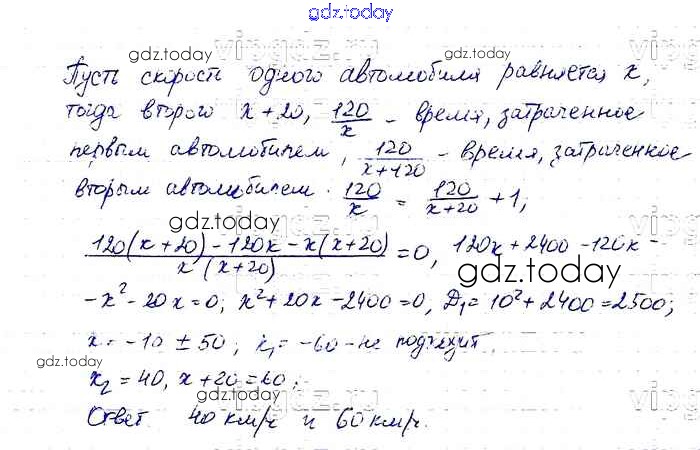 gdz.today
Пусть скорость одного автомобиля равняется x,
тогда второго x+20, 120/x - время, затраченное
первым автомобилем, 120/(x+120) - время, затраченное
вторым автомобилем. 120/x = 120/(x+20) + 1,
(120(x+20) - 120x - x(x+20))/(x(x+20)) = 0, 120x + 2400 - 120x -
- x² - 20x = 0; x² + 20x - 2400 = 0, D₁ = 10² + 2400 = 2500;
x = -10 ± 50; x₁ = -60 - не подходит
x₂ = 40, x + 20 = 60;
Ответ 40 км/ч и 60 км/ч.
gdz.today
gdz.today
gdz.today
gdz.today
gdz.today
gdz.today